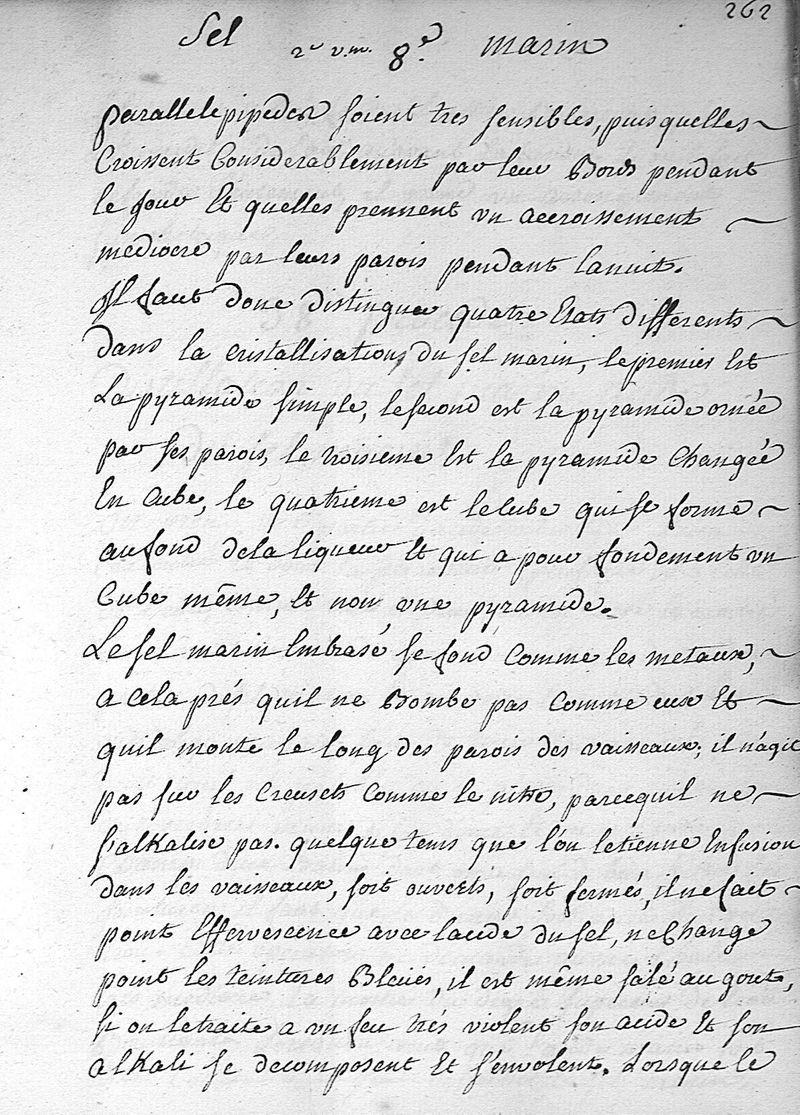 262
Sel 2e v.m. 8e. marin
parallelepipedes soient tres sensibles, puis quelles
Croissent Considerablement par leur Bords pendant
le jour Et quelles prennent vn accroissement
mediocre par leurs parois pendant lanuit.
Il faut donc distinguer quatre Etats differents
dans la cristallisation du sel marin, le premier Est
La pyramide simple, le second est la pyramide ornée
par ses parois, le troisieme Est la pyramide Changée
En Cube, le quatrieme est le Cube qui se forme
au fond de la liqueur Et qui a pour fondement vn
Cube même, Et non vne pyramide.
Le sel marin Embrasé se fond Comme les metaux,
a cela prés quil ne Bombe pas Comme eux Et
quil monte le long des parois des vaisseaux; il n'agit
pas sur les Creusets Comme le nitre, parcequil ne
s'alKalise pas. quelque tems que l'on le tienne En fusion
dans les vaisseaux, soit ouverts, soit fermés, il ne fait
point Effervescence avec lacide du sel, ne Change
point les teintures Bleües, il est même salé au gout,
si on le traite a vn feu trés violent son acide Et son
alKali se decomposent Et s'envolent. Lorsque le